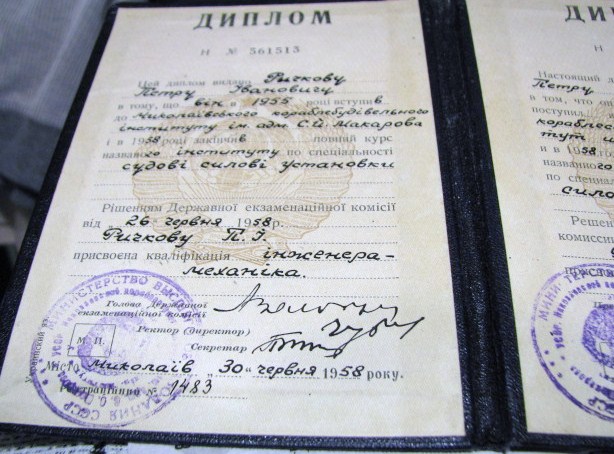 ДИПЛОМ
Н № 561513
Цей диплом видано Ричкову
Петру Івановичу
в тому, що він в 1955 році вступив
до Миколаївського кораблебудівельного
інституту ім. адм. С.Й. Макарова
і в 1958 році закінчив повний курс
названого інституту по спеціальності
судові силові установки
Рішенням Державної екзаменаційної комісії
від „26 червня 1958 р.
Ричкову П. І.
присвоєна кваліфікація інженера-
механіка.
Голова Державної
екзаменаційної комісії
Ректор (Директор)
Секретар
М. П.
Місто Миколаїв „30 червня 1958 року.
Реєстраційно № 1483
Український яз.
ДИ
Настоящий
Петру
в том, что о
кораблес
тут и
и в 1958
названного
по специал
сило
Решение
комиссии